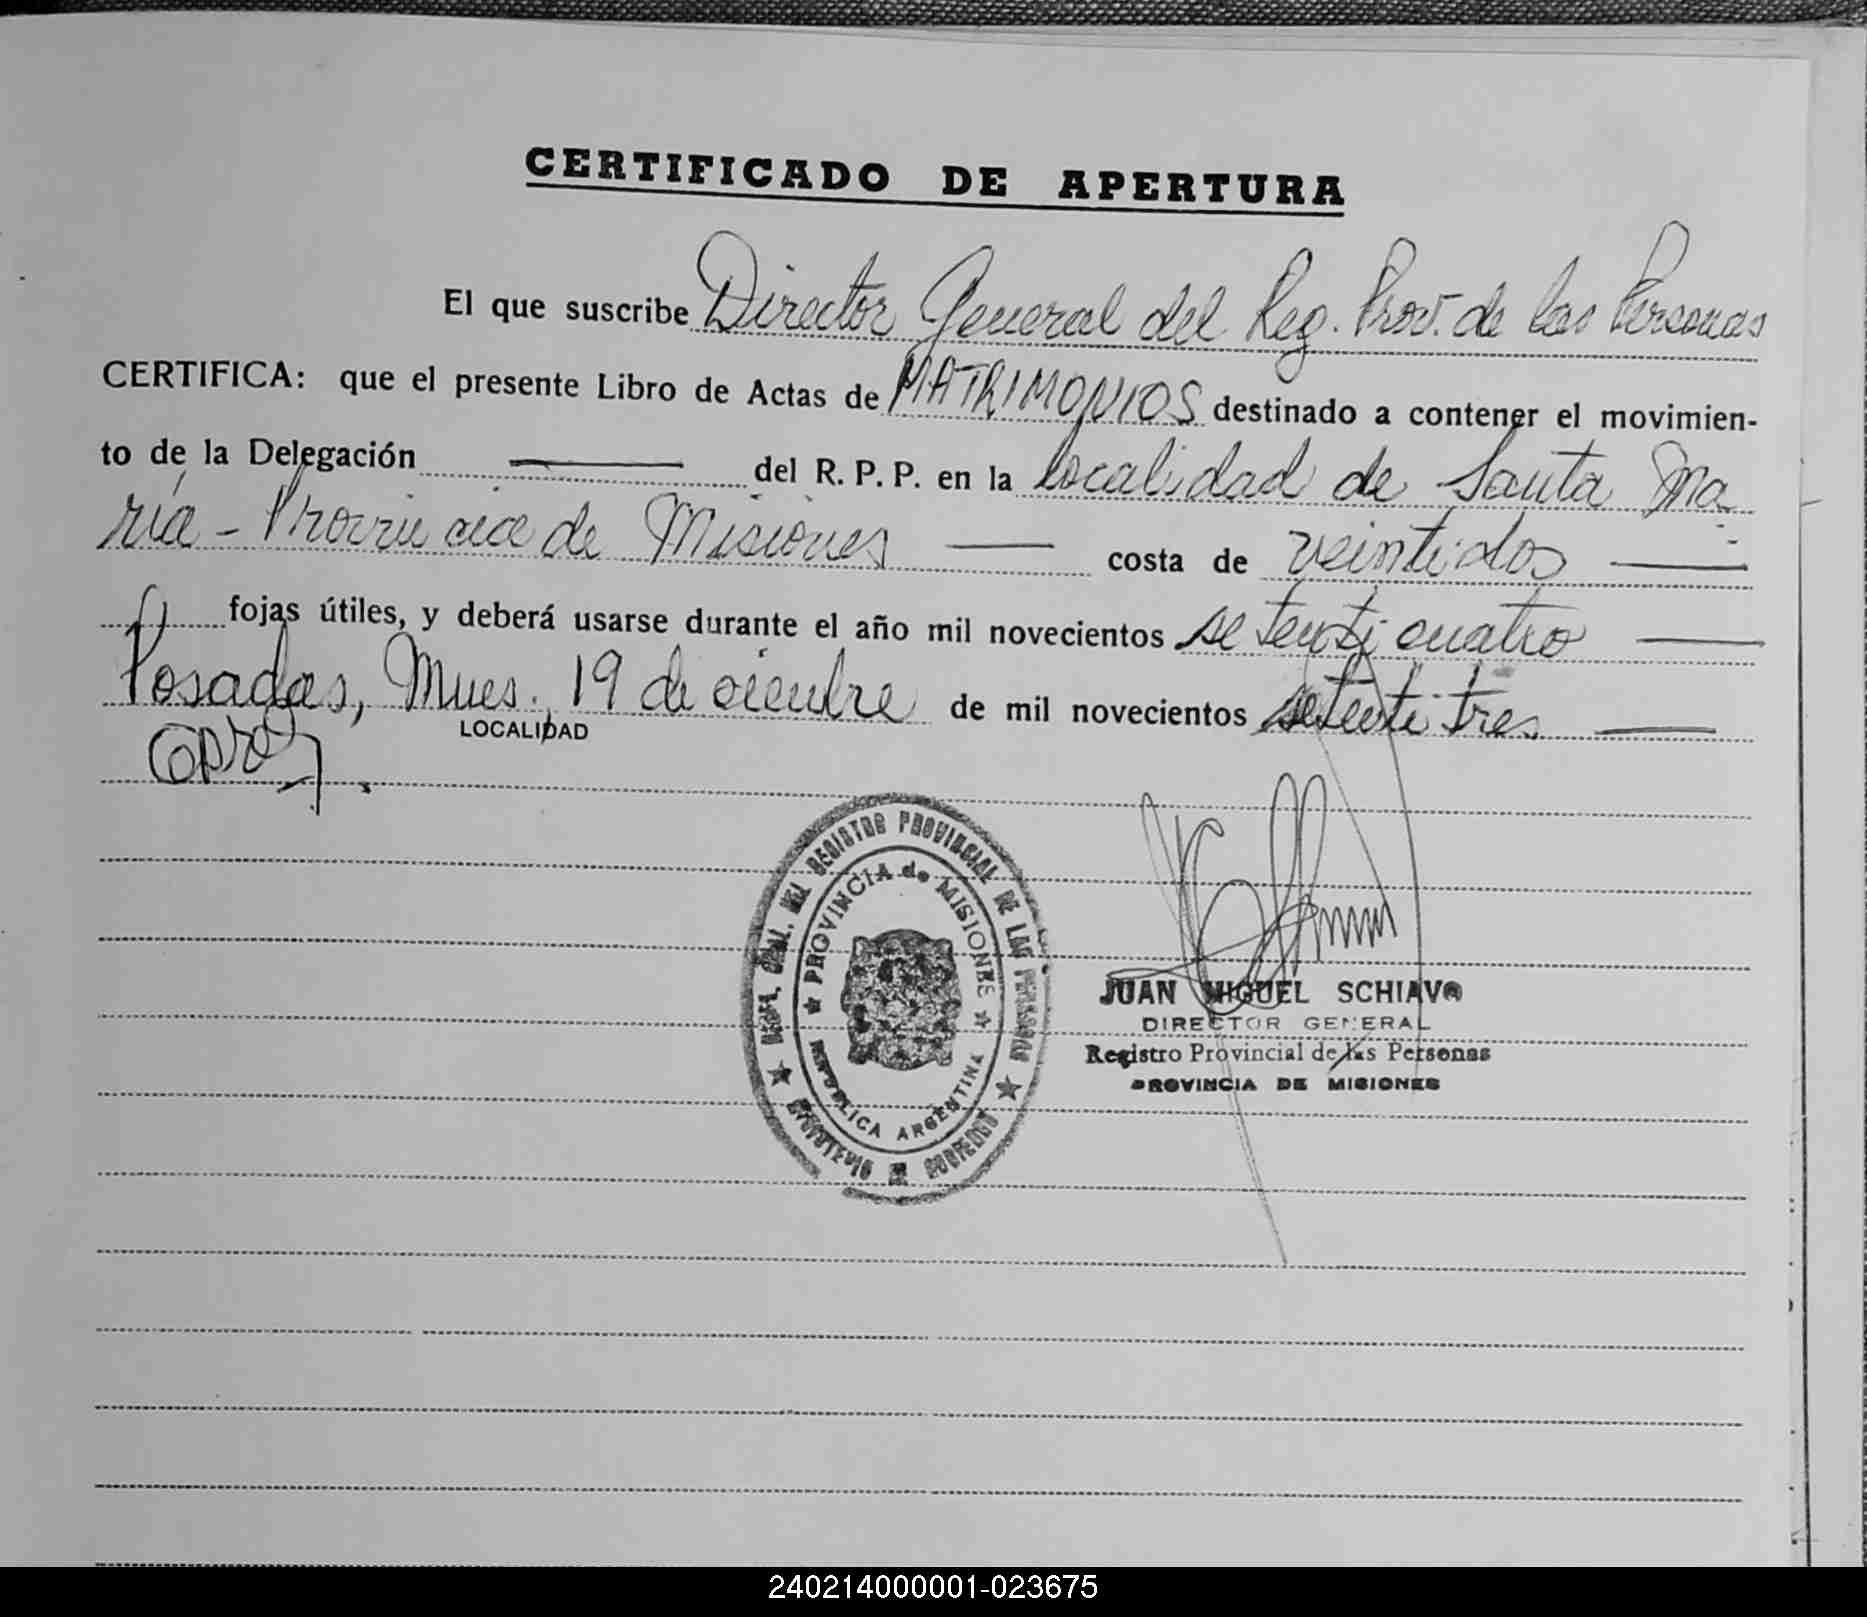 CERTIFICADO DE APERTURA
El que suscribe Director General del Reg. Prov. de las Personas
CERTIFICA: que el presente Libro de Actas de MATRIMONIOS destinado a contener el movimien-
to de la Delegación —— del R. P. P. en la localidad de Santa Ma
ría - Provincia de Misiones —— costa de veintidos ——
fojas útiles, y deberá usarse durante el año mil novecientos setenti cuatro ——
Posadas, Mnes. 19 de de mil novecientos setenti tres ——
LOCALIDAD
DCCION. GRAL. DEL REGISTRO PROVINCIAL DE LAS PERSONAS
PROVINCIA de MISIONES
REPUBLICA ARGENTINA
MINISTERIO DE GOBIERNO
JUAN MIGUEL SCHIAVO
DIRECTOR GENERAL
Registro Provincial de las Personas
PROVINCIA DE MISIONES
240214000001-023675